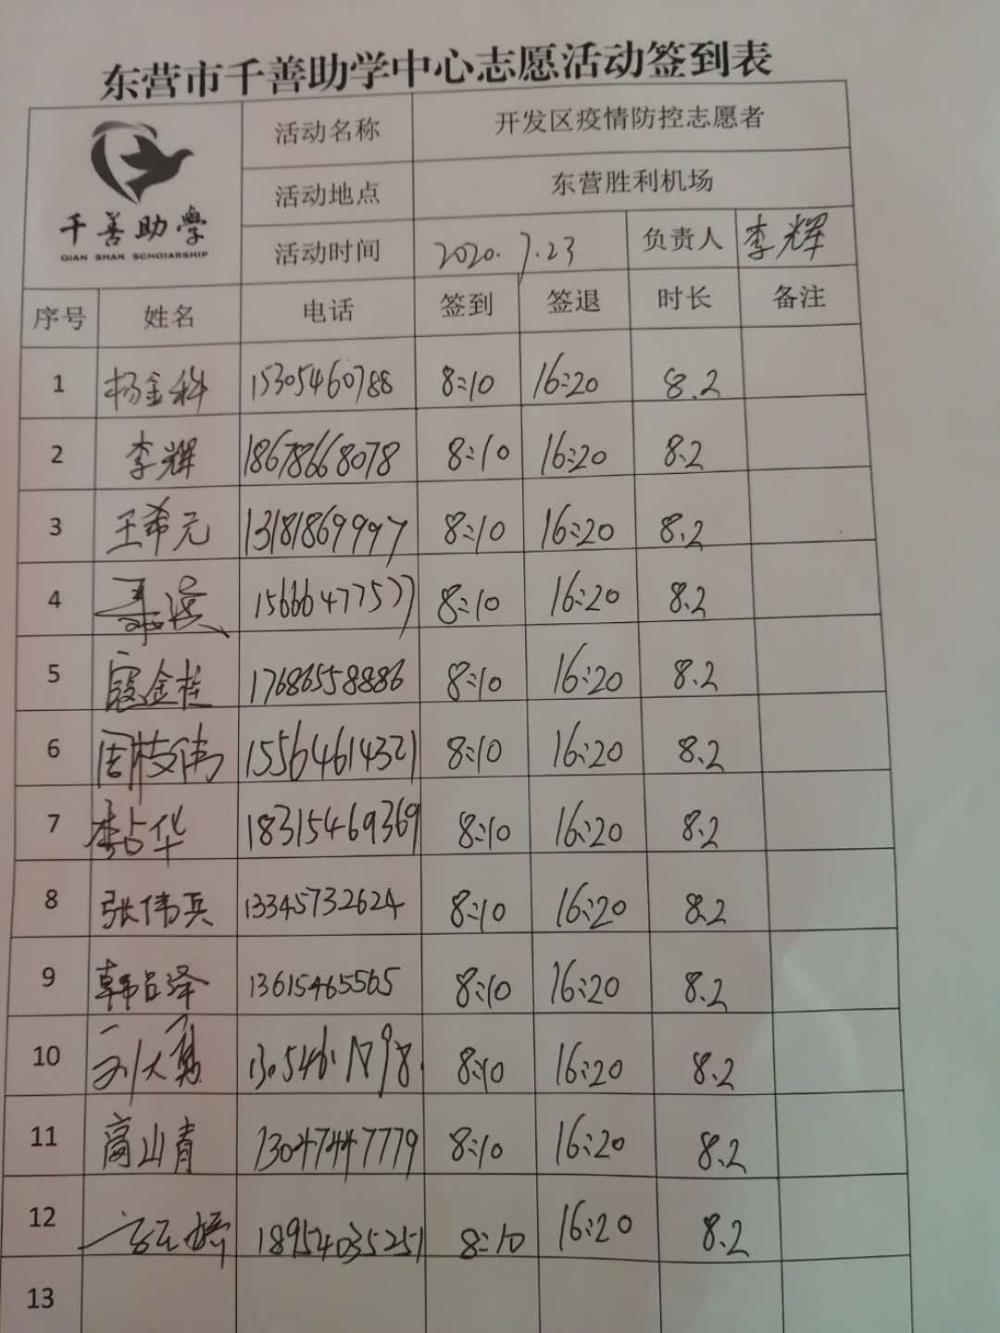 东营市千善助学中心志愿活动签到表
千善助學
QIAN SHAN SCHOIARSHIP
活动名称 开发区疫情防控志愿者
活动地点 东营胜利机场
活动时间 2020.7.23 负责人 李辉
序号 姓名 电话 签到 签退 时长 备注
1 杨金科 15305460788 8:10 16:20 8.2
2 李辉 18678668078 8:10 16:20 8.2
3 王希元 13181869997 8:10 16:20 8.2
4 15666477577 8:10 16:20 8.2
5 金桂 17686558886 8:10 16:20 8.2
6 周枝伟 15564614321 8:10 16:20 8.2
7 李占华 18315469369 8:10 16:20 8.2
8 张伟兵 13345732624 8:10 16:20 8.2
9 韩吕泽 13615465565 8:10 16:20 8.2
10 刘大勇 8:10 16:20 8.2
11 高山青 13047447779 8:10 16:20 8.2
12 18954035251 8:10 16:20 8.2
13